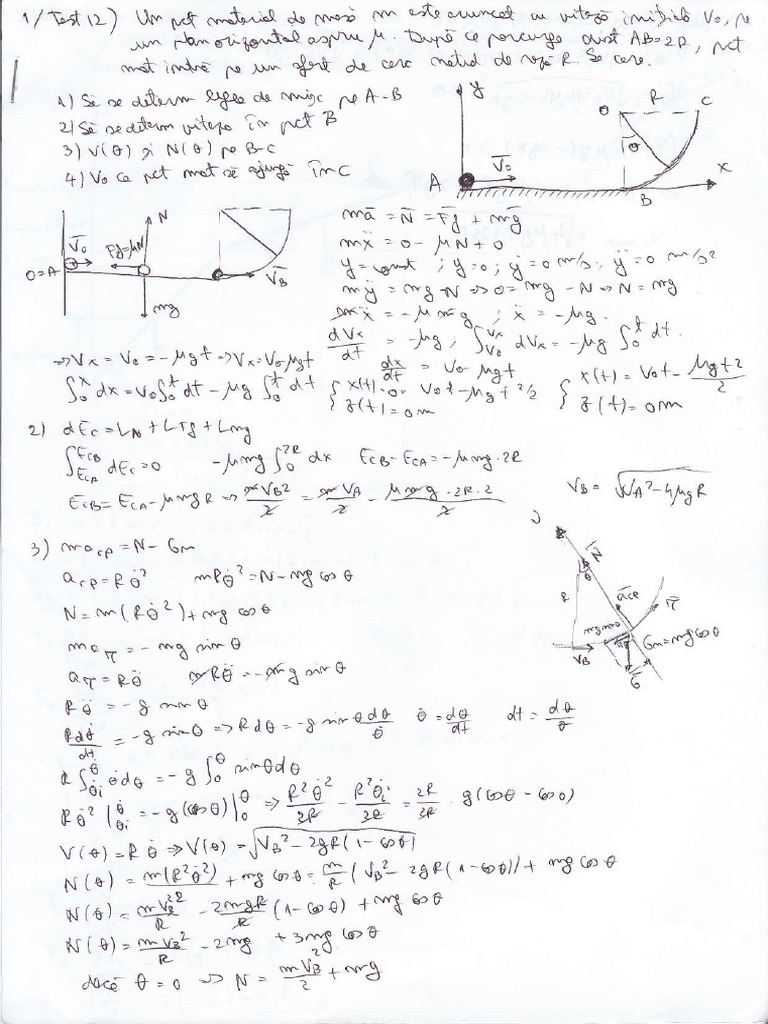 1/Test 12) Un pct material de masă m este aruncat cu viteză inițială V0, pe
un plan orizontal aspru μ. După ce parcurge dist AB=2R, pct
mat intră pe un sfert de cerc neted de rază R. Se cere.
1) Să se determ legea de mișc pe A-B
2) Să se determ viteza în pct B
3) V(θ) și N(θ) pe B-C
4) V0 ca pct mat să ajungă în C
y
O R C
θ
A V̄0 B x
N
V̄0 Ff=μN
O=A V̄B
mg
mā = N̄ = F̄f + mḡ
mẍ = 0 - μN + 0
y = const ; y=0 ; ẏ=0 m/s ; ÿ=0 m/s²
mÿ = mg-N => 0 = mg - N => N = mg
mẍ = -μmg ; ẍ = -μg.
dVx/dt = -μg ; ∫V0^Vx dVx = -μg ∫0^t dt.
=> Vx = V0 = -μgt => Vx=V0-μgt dx/dt = V0-μgt
∫0^x dx = V0∫0^t dt - μg ∫0^t dt { x(t)-0 = V0t-μgt²/2 { x(t) = V0t - μgt2/2
z(t)=0m z(t)=0m
2) dEc = LN + LFf + Lmg
∫EcA^EcB dEc = 0 -μmg ∫0^2R dx EcB-EcA = -μmg·2R
EcB = EcA-μmgR => mVB²/2 = mVA/2 - μmg·2R·2/2 VB = √VA²-4μgR
3) macp = N-Gn
acp = Rθ̇² mRθ̇² = N-mg cos θ
N = m(Rθ̇²)+mg cos θ
maτ = -mg sin θ
aτ = Rθ̈ mRθ̈ = -mg sin θ
Rθ̈ = -g sin θ
Rdθ̇/dt = -g sinθ => Rdθ = -g sinθ dθ/θ̇ θ̇ = dθ/dt dt = dθ/θ̇
R∫θ̇i^θ̇ θ̇dθ = -g∫0^θ sinθdθ
Rθ̇² |θ̇i^θ̇ = -g(cosθ)|0^θ => R²θ̇²/2R - R²θ̇i²/2R = 2R/2R · g(cosθ - cos0)
V(θ) = Rθ̇ => V(θ) = √VB²-2gR(1-cosθ)
N(θ) = m(R²θ̇²)/R + mg cosθ = m/R (VB²-2gR(1-cosθ)) + mg cosθ
N(θ) = mVB²/R - 2mgR/R (1-cosθ) + mg cosθ
N(θ) = mVB²/R - 2mg + 3mg cosθ
dacă θ = 0 => N = mVB²/2 + mg
N̄
θ
R
ācp
τ̄
VB
Gn=mg cosθ
Ḡ